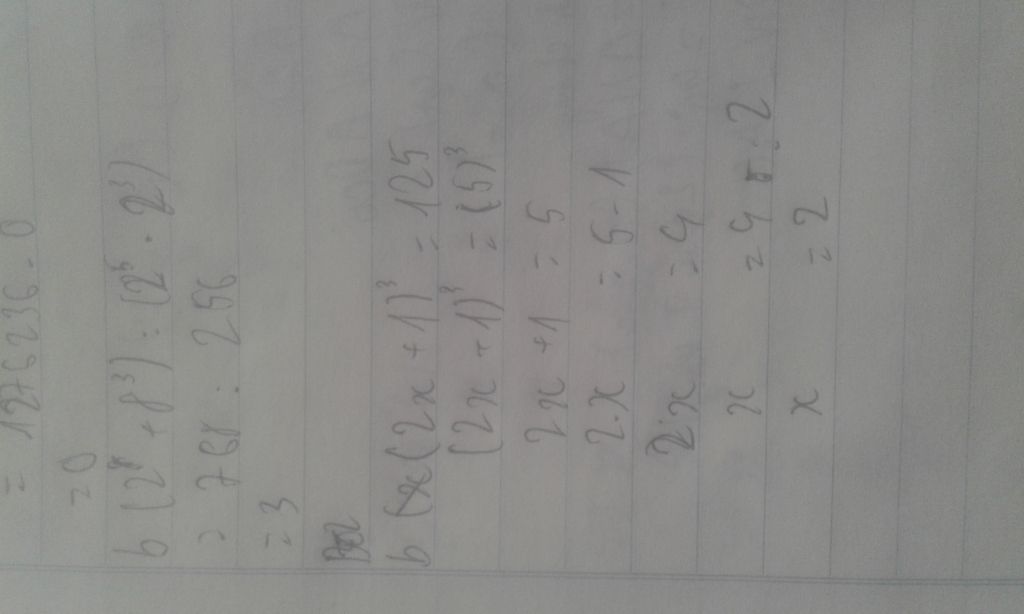 = 1276236 . 0
= 0
b (2⁸ + 8³) : (2⁵ . 2³)
= 768 : 256
= 3
b (2x + 1)³ = 125
(2x + 1)³ = (5)³
2x + 1 = 5
2.x = 5 - 1
2.x = 4
x = 4 : 2
x = 2